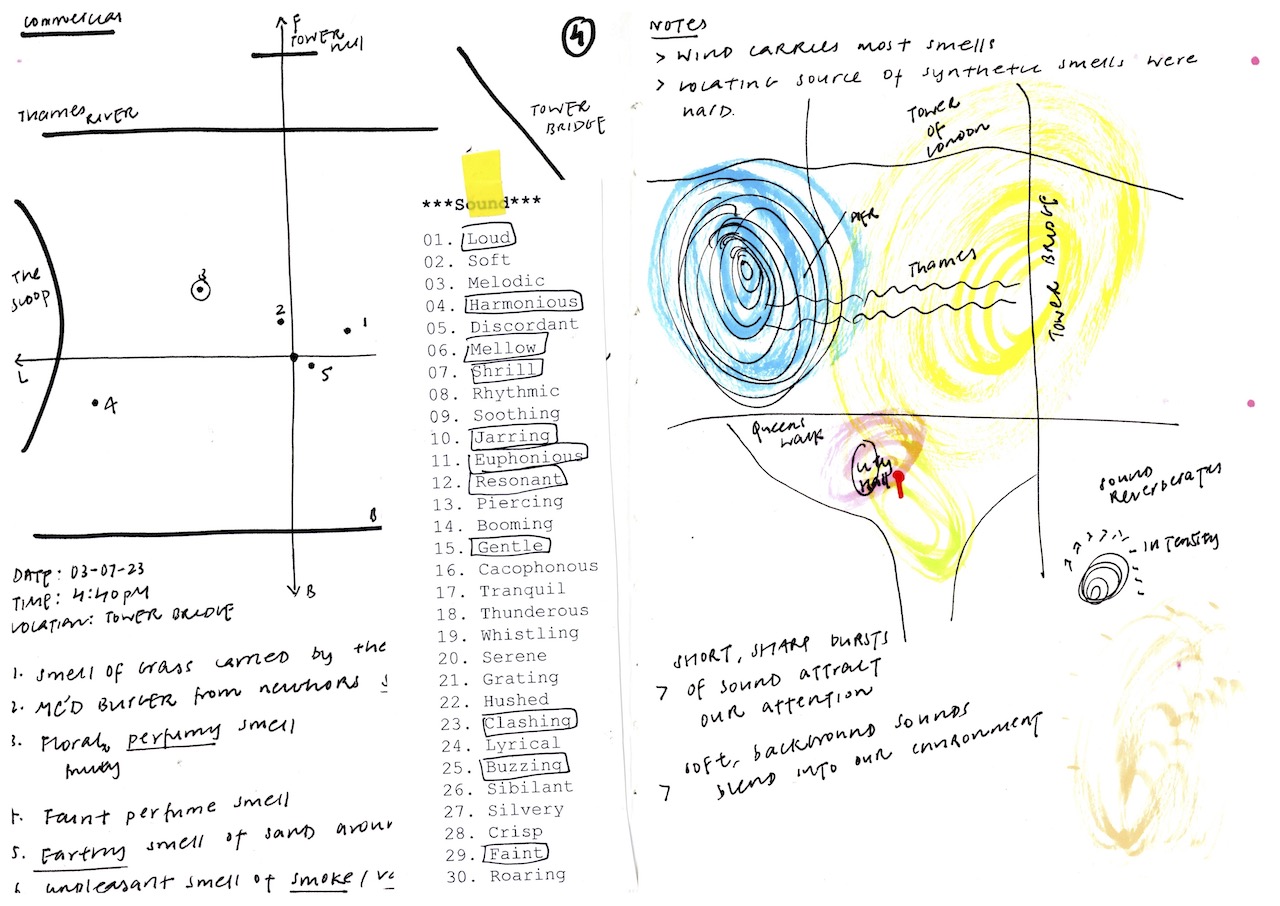 COMMERCIAL
F
TOWER HILL
4
THAMES RIVER
TOWER
BRIDGE
THE
SCOOP
3
2
1
L
5
4
B
B
DATE: 03-07-23
TIME: 4:40 PM
LOCATION: TOWER BRIDGE
1. smell of grass carried by the
2. MC'D BURGER from
3. Floral, perfumy smell
fruity
4. Faint perfume smell
5. Earthy smell of sand
6 unpleasant smell of smoke /
***Sound***
01. Loud
02. Soft
03. Melodic
04. Harmonious
05. Discordant
06. Mellow
07. Shrill
08. Rhythmic
09. Soothing
10. Jarring
11. Euphonious
12. Resonant
13. Piercing
14. Booming
15. Gentle
16. Cacophonous
17. Tranquil
18. Thunderous
19. Whistling
20. Serene
21. Grating
22. Hushed
23. Clashing
24. Lyrical
25. Buzzing
26. Sibilant
27. Silvery
28. Crisp
29. Faint
30. Roaring
NOTES
> WIND CARRIES MOST SMELLS
> LOCATING SOURCE OF SYNTHETIC SMELLS WERE
HARD.
TOWER
OF
LONDON
PIER
Thames
TOWER BRIDGE
Queens
walk
City
Hall
SOUND
REVERBERATES
INTENSITY
SHORT, SHARP BURSTS
> OF SOUND ATTRACT
OUR ATTENTION
SOFT, BACKGROUND SOUNDS
> BLEND INTO OUR ENVIRONMENT